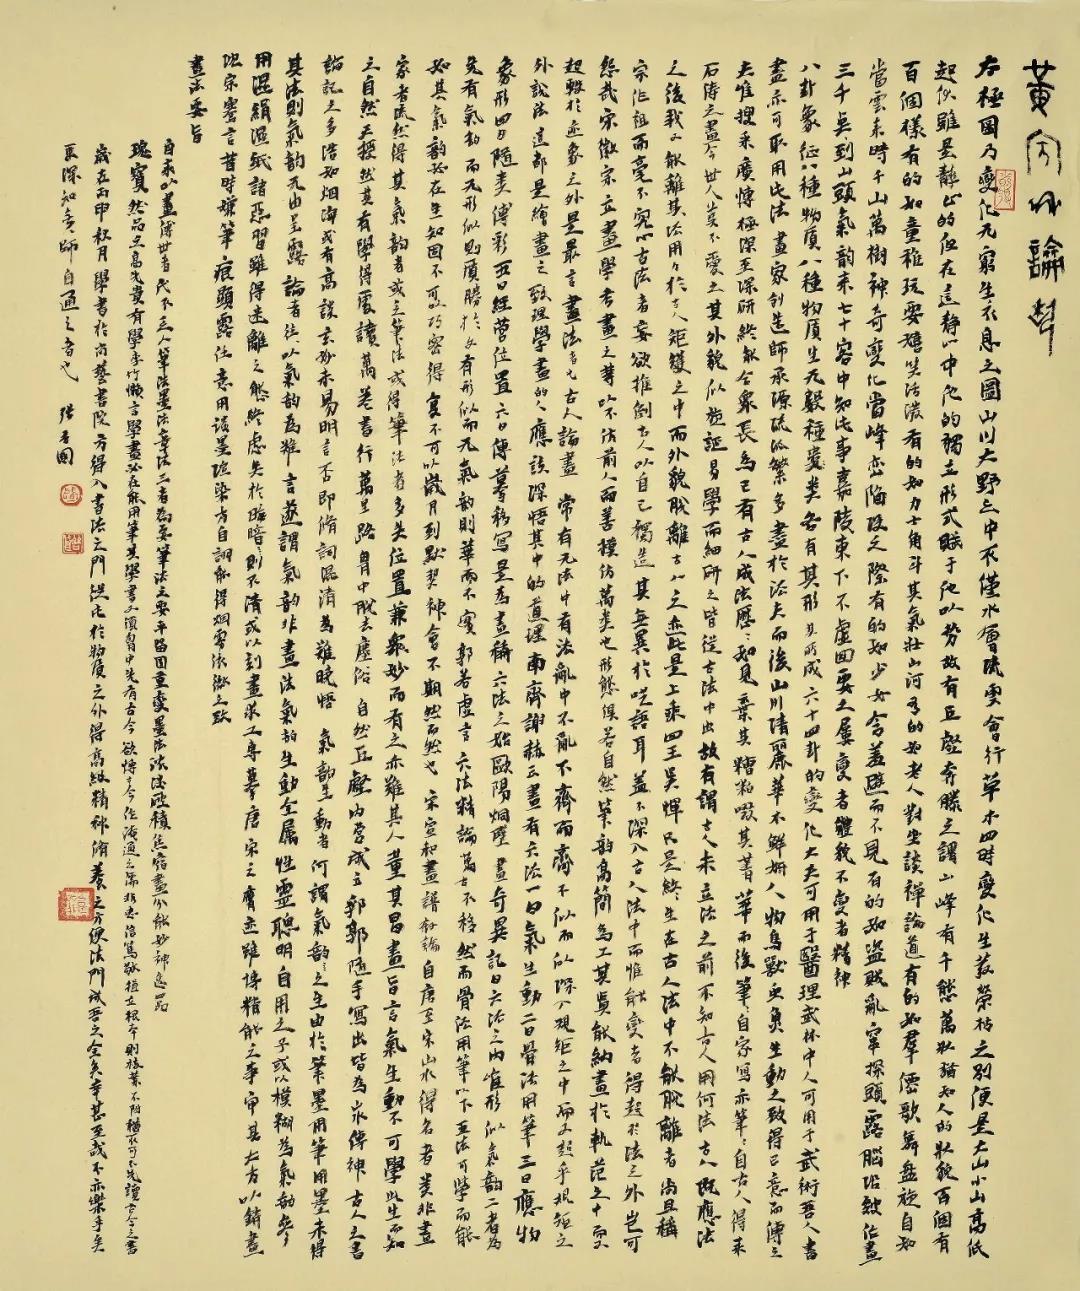 黄宾虹论画
太极图乃变化无穷生生不息之图山川大野之中不仅水流云会行草木四时变化生发荣枯之别便是大山小山高低
起伏虽是静止的但在这静心中他的独立形式赋于他以势故有丘壑奔腾之谓山峰有千态万状犹如人的状貌百个有
百个样有的如童稚玩耍嬉笑活泼有的如力士角斗其气壮山河有的如老人对坐谈禅论道有的如群僊歌舞盘旋自如
当云来时千山万树神奇变化当峰峦陷没之际有的如少女含羞瞧而不见有的如盗贼乱窜探头露脑
三千点到山头气韵来七十客中知此事嘉陵东下不虚回要之屡变者体貌不变者精神
八卦象征八种物质八种物质生无数种类各有其形其所成六十四卦的变化大夫可用于医理武林中人可用于武术吾人书
画亦可取用此法画家创造师承源流派繁多尽于法夫而后山川清丽华木鲜妍人物鸟兽虫鱼生动之致得己意而传之
夫惟搜采广博极深至深研终能合众长为己有古人成法历历如见弃其糟粕啜其菁华而后笔笔自家写亦笔笔自古人得来
石涛之画今世人莫不爱之其外貌似旋证易学而细研之皆从古法中出故有谓古人未立法之前不知古人用何法古人既应法
之后我又能离其法用用于古人矩矱之中而外貌脱离古人之迹此是上乘四王吴恽只是终生在古人法中不能脱离者尚且称
宗作祖而毫不究心古法者妄欲推倒古人以自己独造其无异于呓语耳盖不深入古人法中而惟能变者得超于法之外岂可
怨哉宋徽宗立画学考画之等以不仿前人而善模仿万类也形态俱若自然笔韵高简为工其贵能纳画于轨范之中而更
超轶于迹象之外是最言画法者也古人论画常有无法中有法乱中不乱不齐而齐不似而似深入规矩之中而又超乎规矩之
外说法这都是绘画之致理学画的人应该深悟其中的道理南齐谢赫云画有六法一曰气生动二曰骨法用笔三曰应物
象形四曰随类傅彩五曰经营位置六曰传摹移写是为画称六法之始欧阳炯壁画奇异记曰六法之内惟形似气韵二者为
先有气韵而无形似则质胜于文有形似而无气韵则华而不实郭若虚言六法精论万古不移然而骨法用笔以下五法可学而能
如其气韵必在生知固不可以巧密得复不可以岁月到默契神会不期然而然也宋宣和画谱叙论自唐至宋山水得名者类非画
家者流然得其气韵者或乏笔法或得笔法者多失位置兼众妙而有之亦难其人董其昌画旨言气生动不可学此生而知
之自然天授然其有学得处读万卷书行万里路胸中脱去尘俗自然丘壑内营成立郛郭随手写出皆为山水传神古人之书
论记之多浩如烟海或有高谈玄妙未易明言否即脩词混淆为难晓悟气韵生动者何谓气韵气韵之生由于笔墨用笔用墨未得
其法则气韵无由呈露论者往往以气韵为难言遂谓气韵非画法气韵生动全属性灵聪明自用之子或以模糊为气韵参
用湿绢湿纸诸恶习虽得迷离之态终虑失于晦暗则不清或以刻画求工专摹唐宋之肤迹虽博精能之事审其大方以销画
宗骞言昔时嫌笔痕头露任意用淡墨染方自诩能得烟云法微之致
画法要旨
自来以画传世者代不乏人笔法墨法章法三者为要笔法之要平留圆重变墨法浓淡破积焦宿画分能妙神逸品
瑰宝然品之高先贵有学李竹懒言学画必在能用笔其学书又须胸中先有古今欲博古今作淹通之儒非忠信笃敬植立根本则枝叶不附横不可不先读古今之书
岁在丙申秋月学书于尚艺书院方得入书法之门